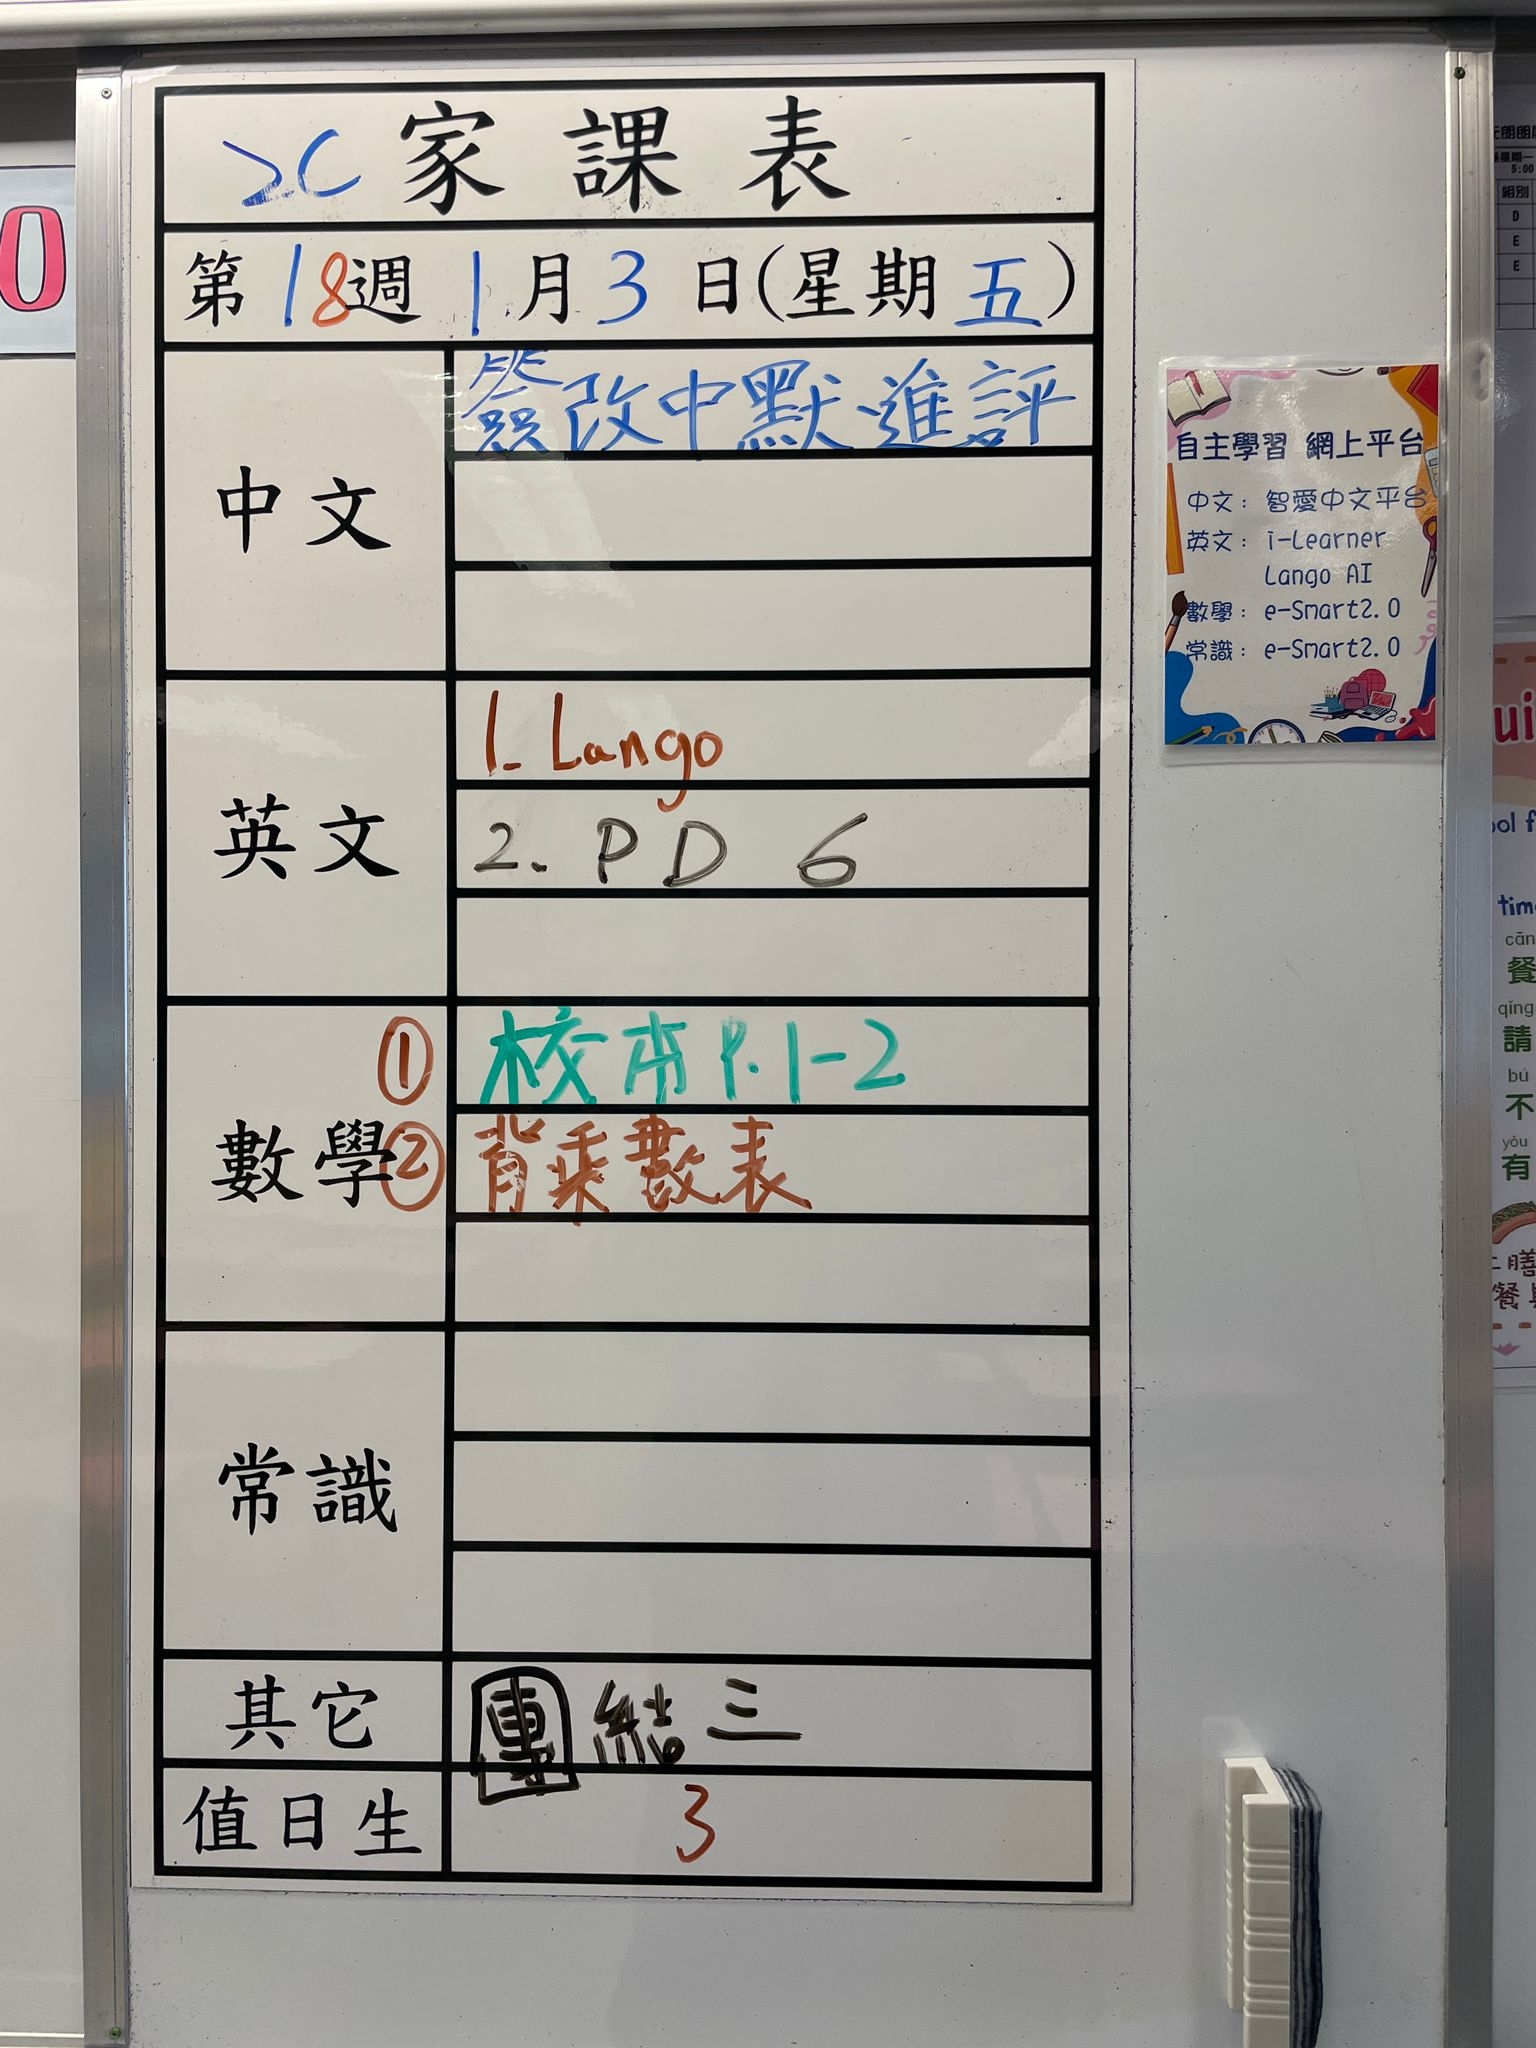 2C 家課表
第18週 1月3日(星期五)
中文
簽改中默進評
英文
1. Lango
2. PD 6
數學
① 校本P.1-2
② 背乘數表
常識
其它
團結三
值日生
3
自主學習 網上平台
中文: 智愛中文平台
英文: i-Learner
Lango AI
數學: e-Smart2.0
常識: e-Smart2.0
0
星期一
5:00
組別
D
E
E
ui
tim
cān
餐
qǐng
請
bú
不
yǒu
有
膳
餐